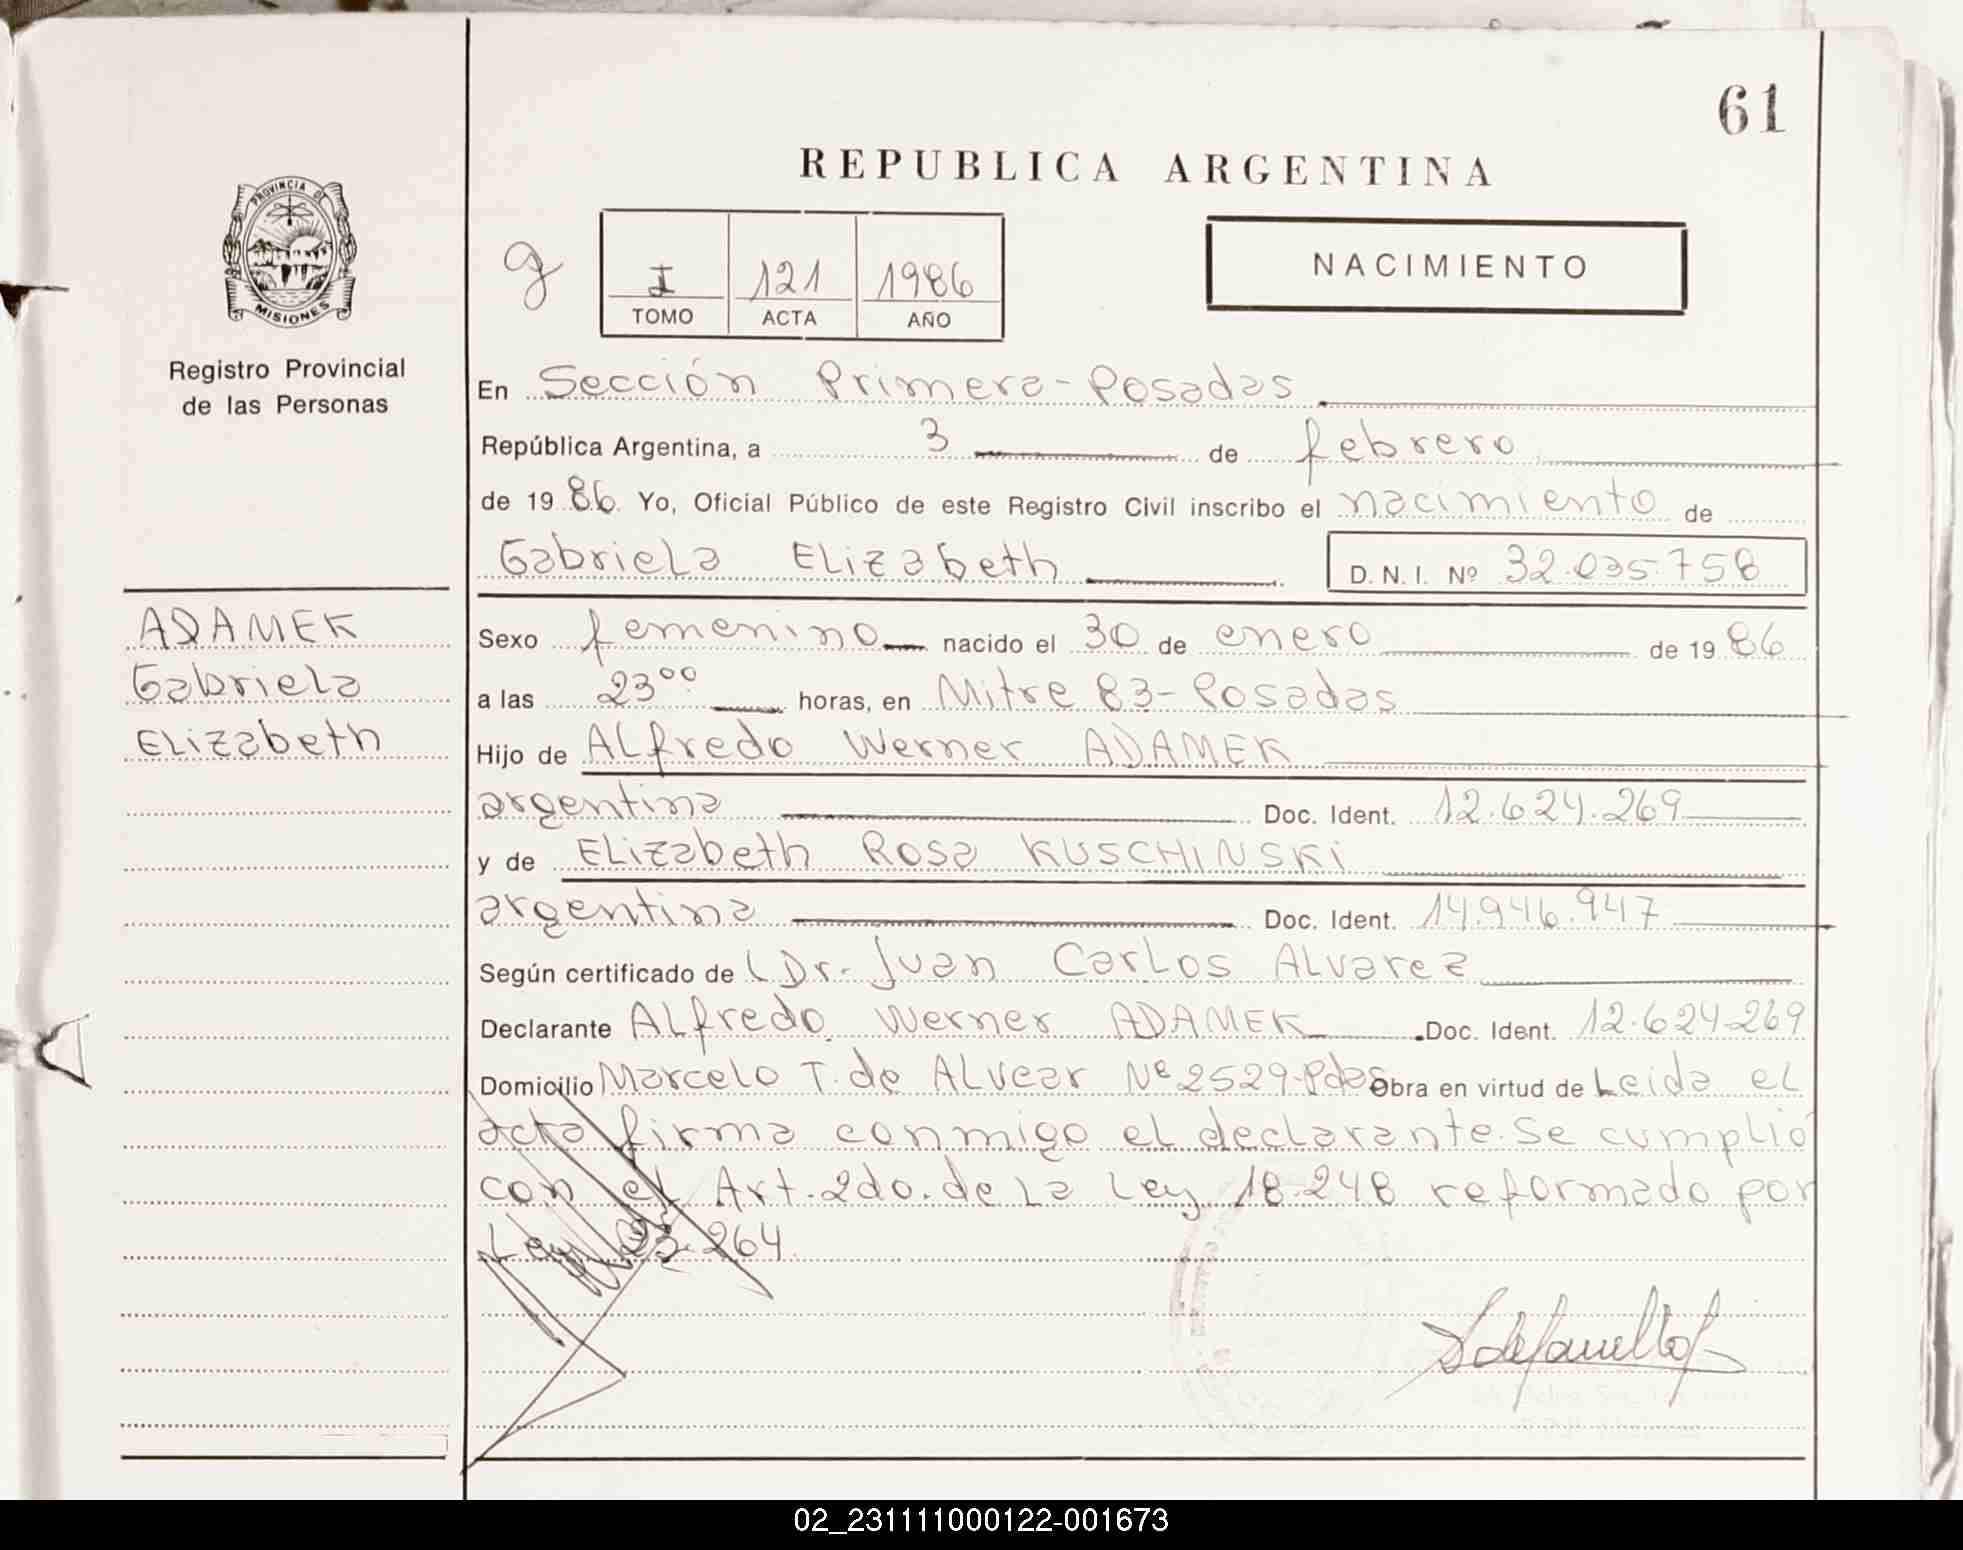 61
REPUBLICA ARGENTINA
PROVINCIA DE
MISIONES
Registro Provincial
de las Personas
g
I 121 1986
TOMO ACTA AÑO
NACIMIENTO
En Sección Primera-Posadas
República Argentina, a 3 de febrero
de 1986 Yo, Oficial Público de este Registro Civil inscribo el nacimiento de
Gabriela Elizabeth D.N.I. Nº 32.035.758
ADAMEK
Gabriela
Elizabeth
Sexo femenino nacido el 30 de enero de 1986
a las 23⁰⁰ horas, en Mitre 83-Posadas
Hijo de Alfredo Werner ADAMEK
argentina Doc. Ident. 12.624.269
y de Elizabeth Rosa KUSCHINSKi
argentina Doc. Ident. 14.946.947
Según certificado de l Dr. Juan Carlos Alvarez
Declarante Alfredo Werner ADAMEK Doc. Ident. 12.624.269
Domicilio Marcelo T. de Alvear Nº 2529-Pdas Obra en virtud de Leida el
acta firma conmigo el declarante. Se cumplió
con el Art. 2do. de la Ley 18.248 reformado por
Ley 23.264.
02_231111000122-001673